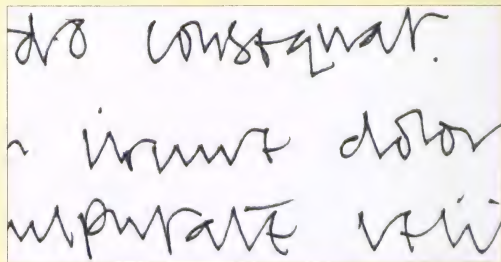 do consequat.
irure dolor
ulputate veli